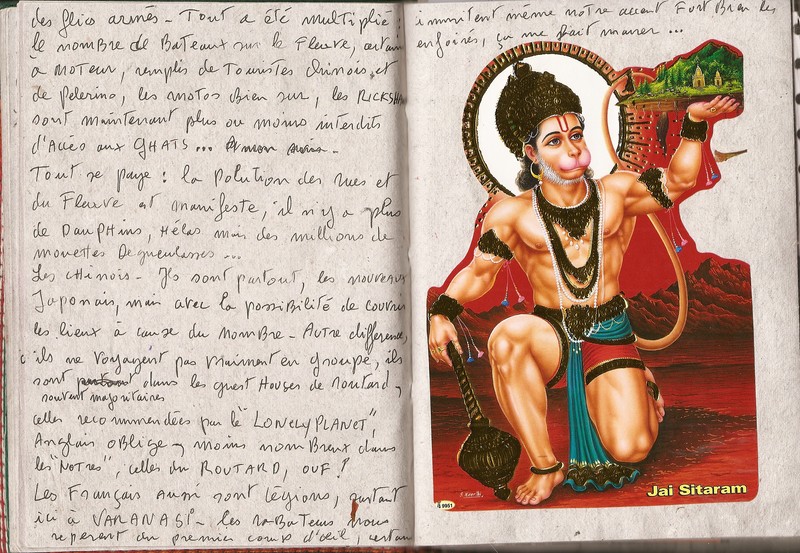 des flics armés - Tout a été multiplié :
le nombre de Bateaux sur le Fleuve, certains
à moteur, remplis de Touristes chinois et
de Pelerins, les motos Bien sur, les RICKSHA
sont maintenant plus ou moins interdits
d'Accès aux GHATS ...
Tout se paye : la polution des rues et
du Fleuve est manifeste, il n'y a plus
de DAUPHINS, Hélas mais des millions de
mouettes Degueulasses ...
Les chinois - Ils sont partout, les nouveaux
Japonais, mais avec la possibilité de couvrir
les lieux à cause du nombre - Autre différence,
ils ne voyagent pas vraiment en groupe, ils
sont dans les guest Houses de routard,
souvent majoritaires
celles recommandées par le "LONELY PLANET",
Anglais oblige - moins nombreux dans
les "NOTRES", celles du ROUTARD, OUF !
Les Français aussi sont légions, surtout
ici à VARANASI - les rabateurs nous
reperent au premier coup d'œil, certains
imitent même notre accent Fort Bien les
enfoirés, ça me fait marrer ...
Jai Sitaram
9951